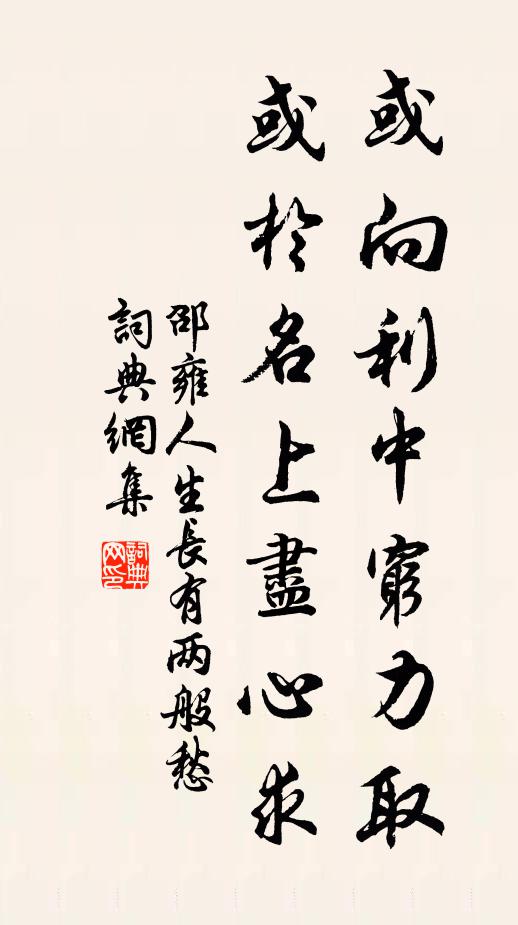 或向利中窮力取
或於名上盡心求
邵雍人生長有两般愁
詞典網集
詞典网印